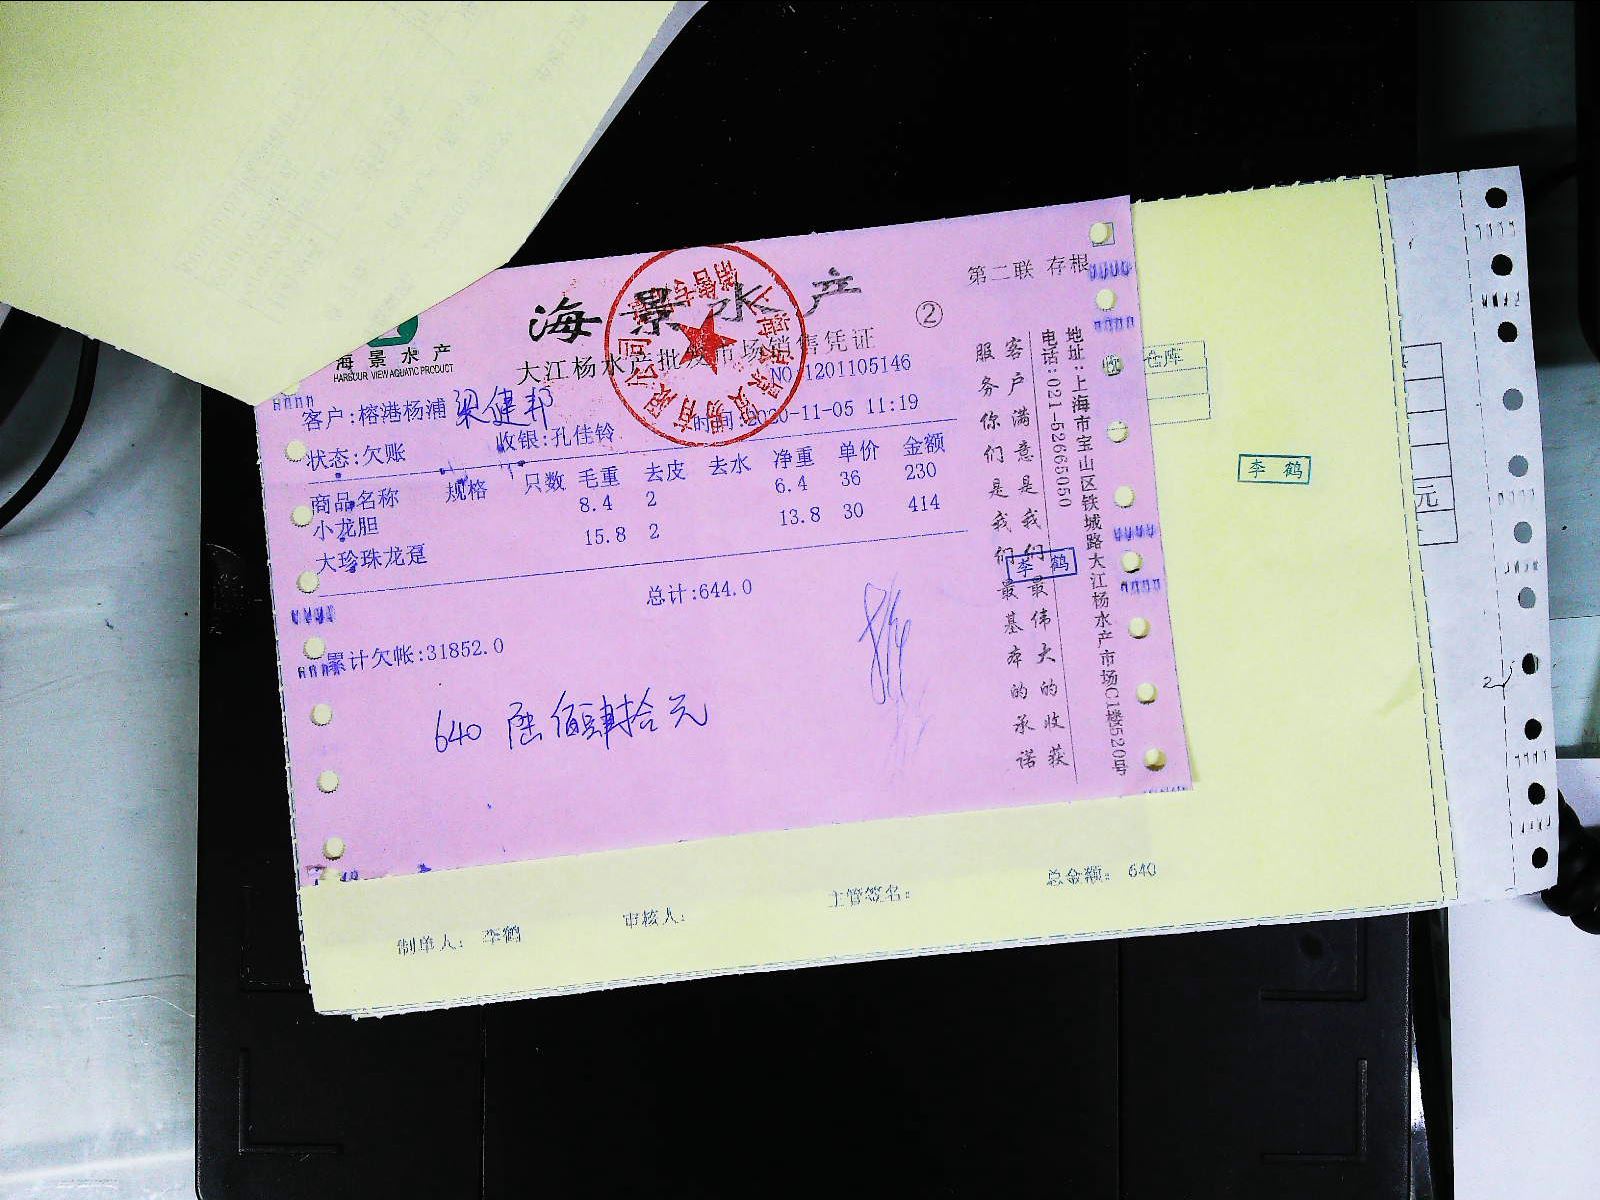 海景水产
第二联 存根
②
海景水产
HARBOUR VIEW AQUATIC PRODUCT
大江杨水产批发市场销售凭证
NO:1201105146
客户:榕港杨浦 梁健邦
时间:2020-11-05 11:19
状态:欠账 收银:孔佳铃
商品名称 规格 只数 毛重 去皮 去水 净重 单价 金额
小龙胆 8.4 2 6.4 36 230
大珍珠龙趸 15.8 2 13.8 30 414
总计:644.0
累计欠帐:31852.0
640 陆佰肆拾元
客户满意是我们最伟大的收获
服务你们是我们最基本的承诺
地址:上海市宝山区铁城路大江杨水产市场C1楼520号
电话:021-52665050
李鹤
仓库
李鹤
元
制单人: 李鹤
审核人:
主管签名:
总金额: 640